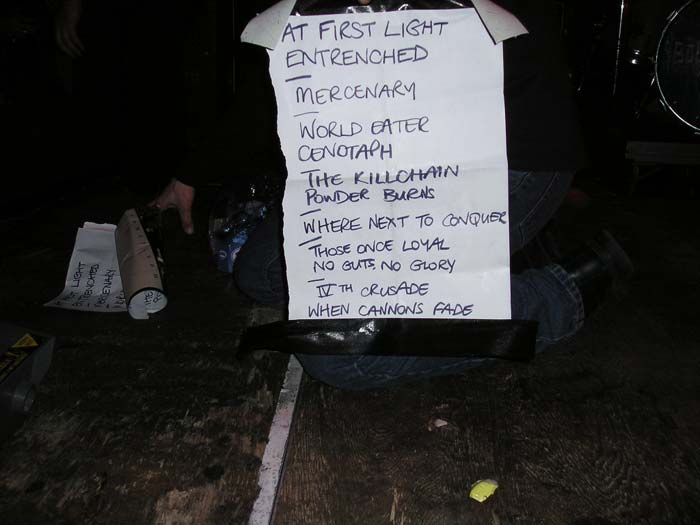 AT FIRST LIGHT
ENTRENCHED
MERCENARY
WORLD EATER
CENOTAPH
THE KILLCHAIN
POWDER BURNS
WHERE NEXT TO CONQUER
THOSE ONCE LOYAL
NO GUTS, NO GLORY
IVTH CRUSADE
WHEN CANNONS FADE
AT FIRST LIGHT
ENTRENCHED
MERCENARY